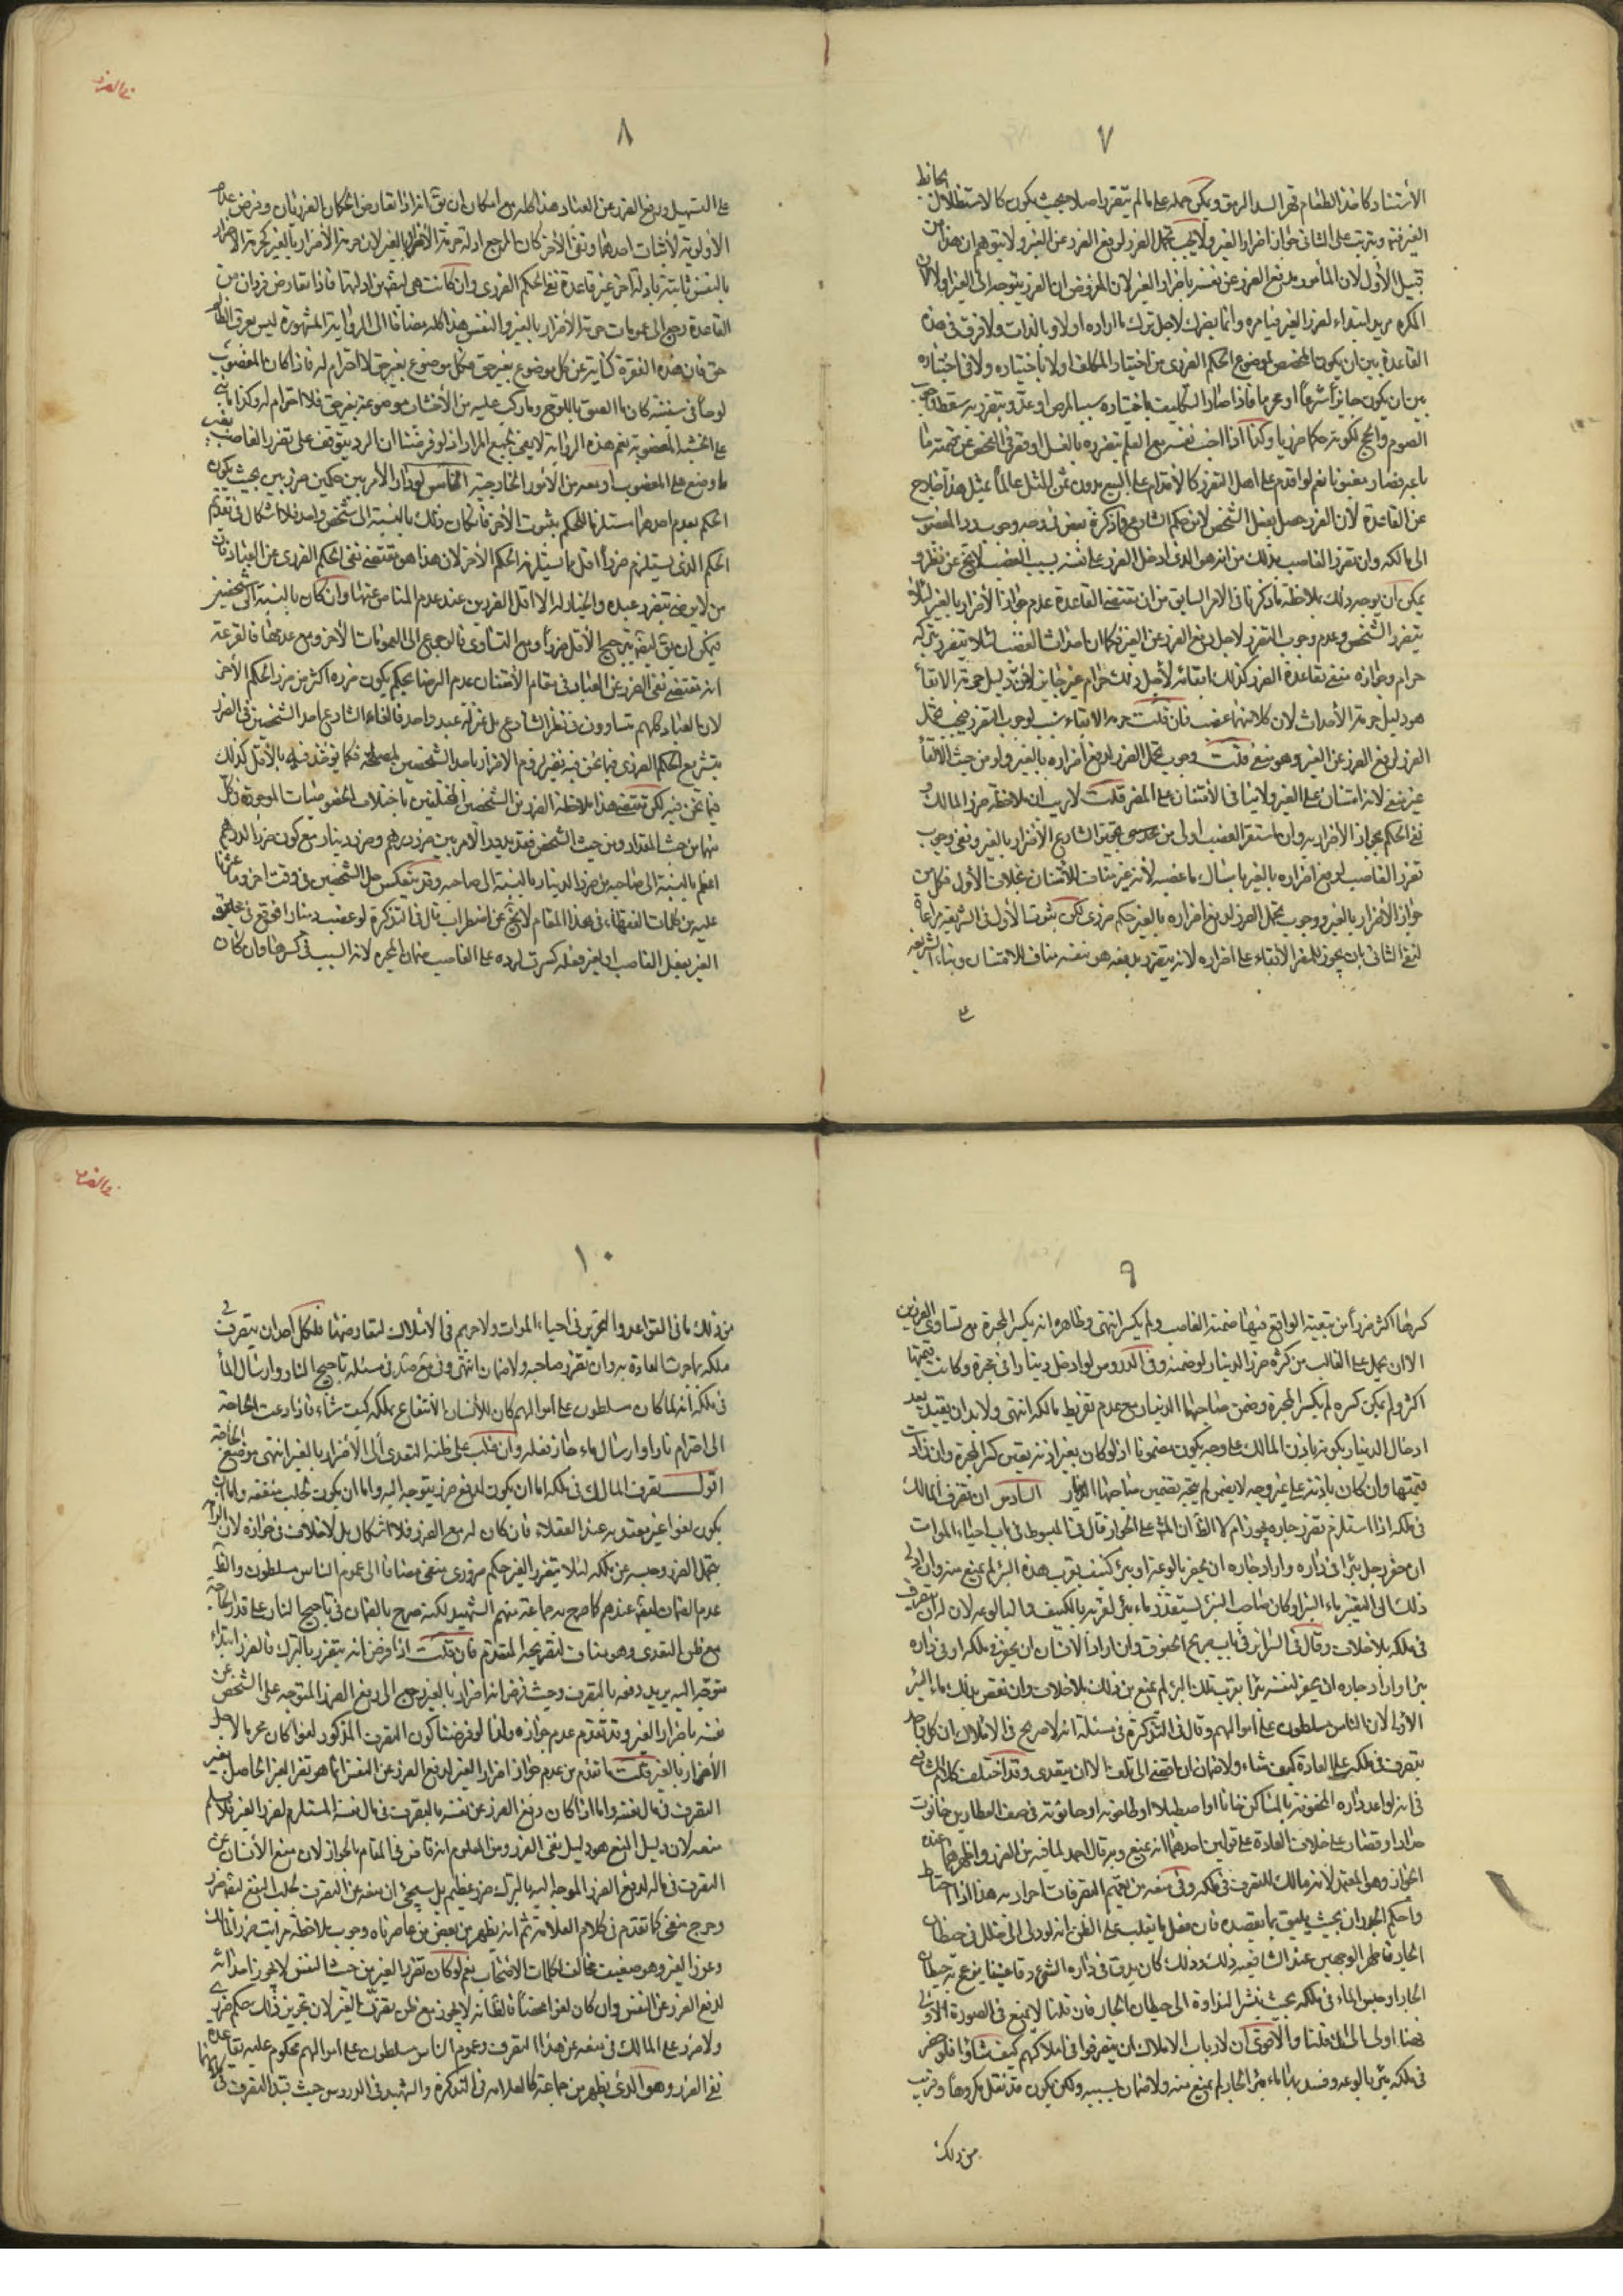 ٧
الأستناد كاخذ الطعام قهرا لسد الرمق ويمكن حمله على ما لم يتضرر اصلا بحيث يكون كالاستظلال بحائط
الغير فتم ويترتب على الثانى جواز اضرار الغير ولا يجب تحمل الضرر لدفع الضرر عن الغير ولا يتوهم ان هذا من
قبيل الأول لان المأمور يدفع الضرر عن نفسه باضرار الغير لان المفروض ان الضرر يتوجه الى الغير اولا لان
المكره مريد ابتداء لضرر الغير فيأمره وانما يضره لاجل ترك ما اراده اولا وبالذات ولا فرق فى هذه
القاعدة بين ان يكون المحصل لموضوع الحكم الضررى من اختيار المكلف اولا باختياره ولا فى اختياره
بين ان يكون جائزا شرعا او محرما فاذا صار المكلف باختياره سببا لمرض او عدو يتضرر به سقط وجوب
الصوم والحج لكونه حكما ضرريا وكذا اذا اجنب نفسه مع العلم بتضرره بالغسل او قصر فى الفحص عن قيمة ما
باعه فصار مغبونا نعم لو اقدم على اصل التضرر كالأقدام على البيع بدون ثمن المثل عالما فمثل هذا خارج
عن القاعدة لأن الضرر حصل بفعل الشخص لا من حكم الشارع فما ذكره بعض فى وجه وجوب رد المغصوب
الى مالكه وان تضرر الغاصب بذلك من انه هو الذى ادخل الضرر على نفسه بسبب الغصب لا يخ عن نظر و
يمكن ان يوجه ذلك بملاحظة ما ذكرنا فى الامر السابق من ان مقتضى القاعدة عدم جواز الأضرار بالغير لئلا
يتضرر الشخص وعدم وجوب التضرر لاجل دفع الضرر عن الغير فكما ان احداث الغصب لئلا يتضرر بتركه
حرام وجوازه منفى بقاعدة الضرر كذلك ابقائه لأجل ذلك حرام غير جايز لان دليل حرمة الابقاء
هو دليل حرمة الأحداث لان كلا منهما غصب فان قلت حرمة الابقاء سبب لوجوب التضرر فيجب تحمل
الضرر لدفع الضرر عن الغير وهو منفى قلت وجوب تحمل الضرر لدفع اضراره بالغير ولو من حيث الابقاء
غير منفى لانه امتنان على الغير ولا ينافى الأمتنان على المضر قلت لا ريب ان ملاحظة ضرر المالك و
نفى الحكم بجواز الأضرار به وان استقر الغصب اولى من تجويز الشارع الأضرار بالغير ونفى وجوب
تضرر الغاصب لدفع اضراره بالغير بامساك ما غصبه لأنه غير مناف للأمتنان بخلاف الأول فكل من
جواز الأضرار بالغير ووجوب تحمل الضرر لدفع اضراره بالغير حكم ضررى لكن ثبوت الأول فى الشريعة مراعاة
لنفى الثانى بان يجوز للمضر الأبقاء على اضراره لانه يتضرر بدفعه هو بنفسه مناف للامتنان وبناء الشريعة
على
٨
على التسهيل ورفع الضرر عن العباد هذا كله مع امكان ان يق انه اذا تعارض الحكمان الضرريان وفرض عدم
الأولوية لأثبات احدهما ونفى الأخر كان المرجع ادلة حرمة الأضرار بالغير لان حرمة الأضرار بالغير كحرمة الأضرار
بالنفس ثابتة بادلة اخر غير قاعدة نفى الحكم الضررى وان كانت هى ايضا من ادلتها فاذا تعارض فردان من
القاعدة رجع الى عمومات حرمة الأضرار بالغير والنفس هذا كله مضافا الى الرواية المشهورة ليس لعرق الظالم
حق فان هذه الفقرة كناية عن كل موضوع بغير حق فكل موضوع بغير حق لا احترام له فاذا كان المغصوب
لوحا فى سفينة كان ما الصق باللوح وما ركب عليه من الأخشاب موضوعة بغير حق فلا احترام له وكذا ما بنى
على الخشبة المغصوبة نعم هذه الرواية لا يعى لجميع المراد اذ لو فرضنا ان الرد يتوقف على تضرر الغاصب بغير
ما وضع على المغصوب او بعده من الأمور الخارجية الخامس لو دار الأمر بين حكمين ضرريين بحيث يكون
الحكم بعدم احدهما مستلزما للحكم بثبوت الأخر فان كان ذلك بالنسبة الى شخص واحد فلا اشكال فى تقديم
الحكم الذى يستلزم ضررا اقل مما يستلزمه الحكم الأخر لان هذا هو مقتضى نفى الحكم الضررى عن العباد فان
من لا يرضى بتضرر عبده لا يختار له الا اقل الضررين عند عدم المناص عنهما وان كان بالنسبة الى شخصين
فيمكن ان يق ايضا بترجيح الأقل ضررا ومع التساوى فالرجوع الى العمومات الأخر ومع عدمها فالقرعة
انه مقتضى نفى الضرر عن العباد فى مقام الأمتنان عدم الرضا بحكم يكون ضرره اكثر من ضرر الحكم الأخر
لان العباد كلهم متساوون فى نظر الشارع بل بمنزلة عبد واحد فالقاء الشارع احد الشخصين فى الضرر
بتشريع الحكم الضررى فيما نحن فيه نظير لزوم الاضرار باحد الشخصين لمصلحته فكما يؤخذ فيه بالأقل كذلك
فيما نحن فيه لكن مقتضى هذا ملاحظة الضررين الشخصين المختلفين باختلاف الخصوصيات الموجودة فى كل
منهما من حيث المقدار ومن حيث الشخص فقد يدور الأمر بين ضرر درهم وضرر دينار مع كون ضرر الدرهم
اعظم بالنسبة الى صاحبه من ضرر الدينار بالنسبة الى صاحبه وقد ينعكس حال الشخصين فى وقت اخر وما عثرنا
عليه من كلمات الفقهاء فى هذا المقام لا يخ عن اضطراب قال فى التذكرة لو غصب دينارا فوقع فى محبرة
الغير بفعل الغاصب او بغير فعله كسرت لرده وعلى الغاصب ضمان المحبرة لانه السبب فى كسرها وان كان
٩
كسرها اكثر ضررا من تبقية الواقع فيها ضمنه الغاصب ولم يكسر انتهى وظاهره انه يكسر المحبرة مع تساوى الضررين
الا ان يحمل على الغالب من كثرة ضرر الدينار لو ضمنه وفى الدروس لو ادخل دينارا فى محبرة وكانت قيمتها
اكثر ولم يمكن كسره لم يكسر المحبرة وضمن صاحبها الدينار مع عدم تفريط مالكه انتهى ولا بد ان يقيد بعد
ادخال الدينار بكونه باذن المالك على وجه يكون مضمونا اذ لو كان بغير اذنه تعين كسر المحبرة وان زادت
قيمتها وان كان باذنه على غير وجه لا يضمن لم يتجه تضمين صاحبها الدينار السادس ان تصرف المالك
فى ملكه اذا استلزم تضرر جاره يجوز ام لا الظ ان المش على الجواز قال فى المبسوط فى باب احياء الموات
ان حفر رجل بئرا فى داره واراد جاره ان يحفر بالوعة او بئر كنيف بقرب هذه البئر لم يمنع منه وان ادى
ذلك الى تغيير ماء البئر او كان صاحب البئر يستقذر ماء بئره لقربه بالكنيف والبالوعة لان له ان يتصرف
فى ملكه بلا خلاف وقال فى السرائر فى باب حريم الحقوق وان اراد الانسان ان يحفر فى ملكه او فى داره
بئرا واراد جاره ان يحفر لنفسه بئرا بقرب تلك البئر لم يمنع من ذلك بلا خلاف وان نقص بذلك ماء البئر
الأولى لان الناس مسلطون على اموالهم وقال فى التذكرة فى مسئلة انه لا حريم فى الاملاك ان كل واحد
يتصرف فى ملكه على العادة كيف شاء ولا ضمان ان افضى الى تلف الا ان يتعدى وقد اختلف كلام الشافعى
فى انه لو اعد داره المحفوفة بالمساكن خانا او اصطبلا او طاحونة او حانوته فى صف العطارين حانوت
حداد او قصار على خلاف العادة على قولين احدهما انه يمنع وبه قال احمد لما فيه من الضرر واظهرهما عنده
الجواز وهو المعتمد لأنه مالك للتصرف فى ملكه وفى منعه من تعميم التصرفات اضرار به هذا اذا احتاط
واحكم الجدران بحيث يليق بما يقصده فان فعل ما يغلب على الظن انه يؤدى الى خلل فى حيطان
الجار فاظهر الوجهين عند الشافعية ذلك وذلك كان يدق فى داره الشىء دقا عنيفا يزعج به حيطان
الجار او حبس الماء فى ملكه بحيث ينشر النداوة الى حيطان الجار فان قلنا لا يمنع فى الصورة الأولى
فهنا اولى الى ان قلنا والأقوى ان لارباب الاملاك ان يتصرفوا فى املاكهم كيف شاؤا فلو حفر
فى ملكه بئر بالوعة وفسد بها ماء بئر الجار لم يمنع منه ولا ضمان بسببه ولكن يكون قد فعل مكروها وقريب
من ذلك
١٠
من ذلك ما فى القواعد والتحرير فى احياء الموات ولا حريم فى الاملاك لتعارضها فلكل احد ان يتصرف فى
ملكه بما جرت العادة به وان تضرر صاحبه ولا ضمان انتهى وفى مع صد فى مسئلة تاجيج النار وارسال الماء
فى ملكه انه لما كان الناس مسلطون على اموالهم كان للأنسان الأنتفاع بملكه كيف شاء فاذا دعت الحاجة
الى اضرام نار او ارسال ماء جاز فعله وان غلب على ظنه التعدى الى الأضرار بالغير انتهى موضع الحاجة
اقول تصرف المالك فى ملكه اما ان يكون لدفع ضرر يتوجه اليه واما ان يكون لجلب منفعة واما ان
يكون لغوا غير معتد به عند العقلاء فان كان لدفع الضرر فلا اشكال بل لا خلاف فى جوازه لان الزامه
بتحمل الضرر وحبسه عن ملكه لئلا يتضرر الغير حكم ضررى منفى مضافا الى عموم الناس مسلطون والظ
عدم الضمان ايضا عندهم كما صرح به جماعة منهم الشهيد لكنه صرح بالضمان فى تاجيج النار على قدر الحاجة
مع ظن التعدى وهو مناف لتصريحه المتقدم فان قلت اذا فرض انه يتضرر بالترك فالضرر ابتداء
متوجه اليه يريد دفعه بالتصرف وحيث فرض انه اضرار بالغير رجع الى دفع الضرر المتوجه على الشخص عن
نفسه باضرار الغير وقد تقدم عدم جوازه ولذا لو فرضنا كون التصرف المذكور لغوا كان محرما لاجل
الأضرار بالغير قلت ما تقدم من عدم جواز اضرار الغير لدفع الضرر عن النفس انما هو تضرر الغير الحاصل بغير
التصرف فى مال نفسه واما اذا كان دفع الضرر عن نفسه بالتصرف فى مال نفسه المستلزم لضرر الغير فلا نسلم
منعه لان دليل المنع هو دليل نفى الضرر ومن المعلوم انه قاض فى المقام بالجواز لان منع الأنسان عن
التصرف فى ماله لدفع الضرر المتوجه اليه بالترك ضرر عظيم بل سيجئ ان منعه عن التصرف لجلب النفع ايضا ضرر
وحرج منفى كما تقدم فى كلام العلامة ثم انه يظهر من بعض من عاصرناه وجوب ملاحظة مراتب ضرر المالك
وضرر الغير وهو ضعيف مخالف لكلمات الاصحاب نعم لو كان تضرر الغير من حيث النفس لا يجوز احداثه
لدفع الضرر عن النفس وان كان لغوا محضا فالظ انه لا يجوز مع ظن تضرر الغير لان تجويز ذلك حكم ضررى
ولا ضرر على المالك فى منعه عن هذا التصرف وعموم الناس مسلطون على اموالهم محكوم عليه بقاعدة
نفى الضرر وهو الذى يظهر من جماعة كالعلامة فى التذكرة والشهيد فى الدروس حيث قيدا التصرف فى كلامهما